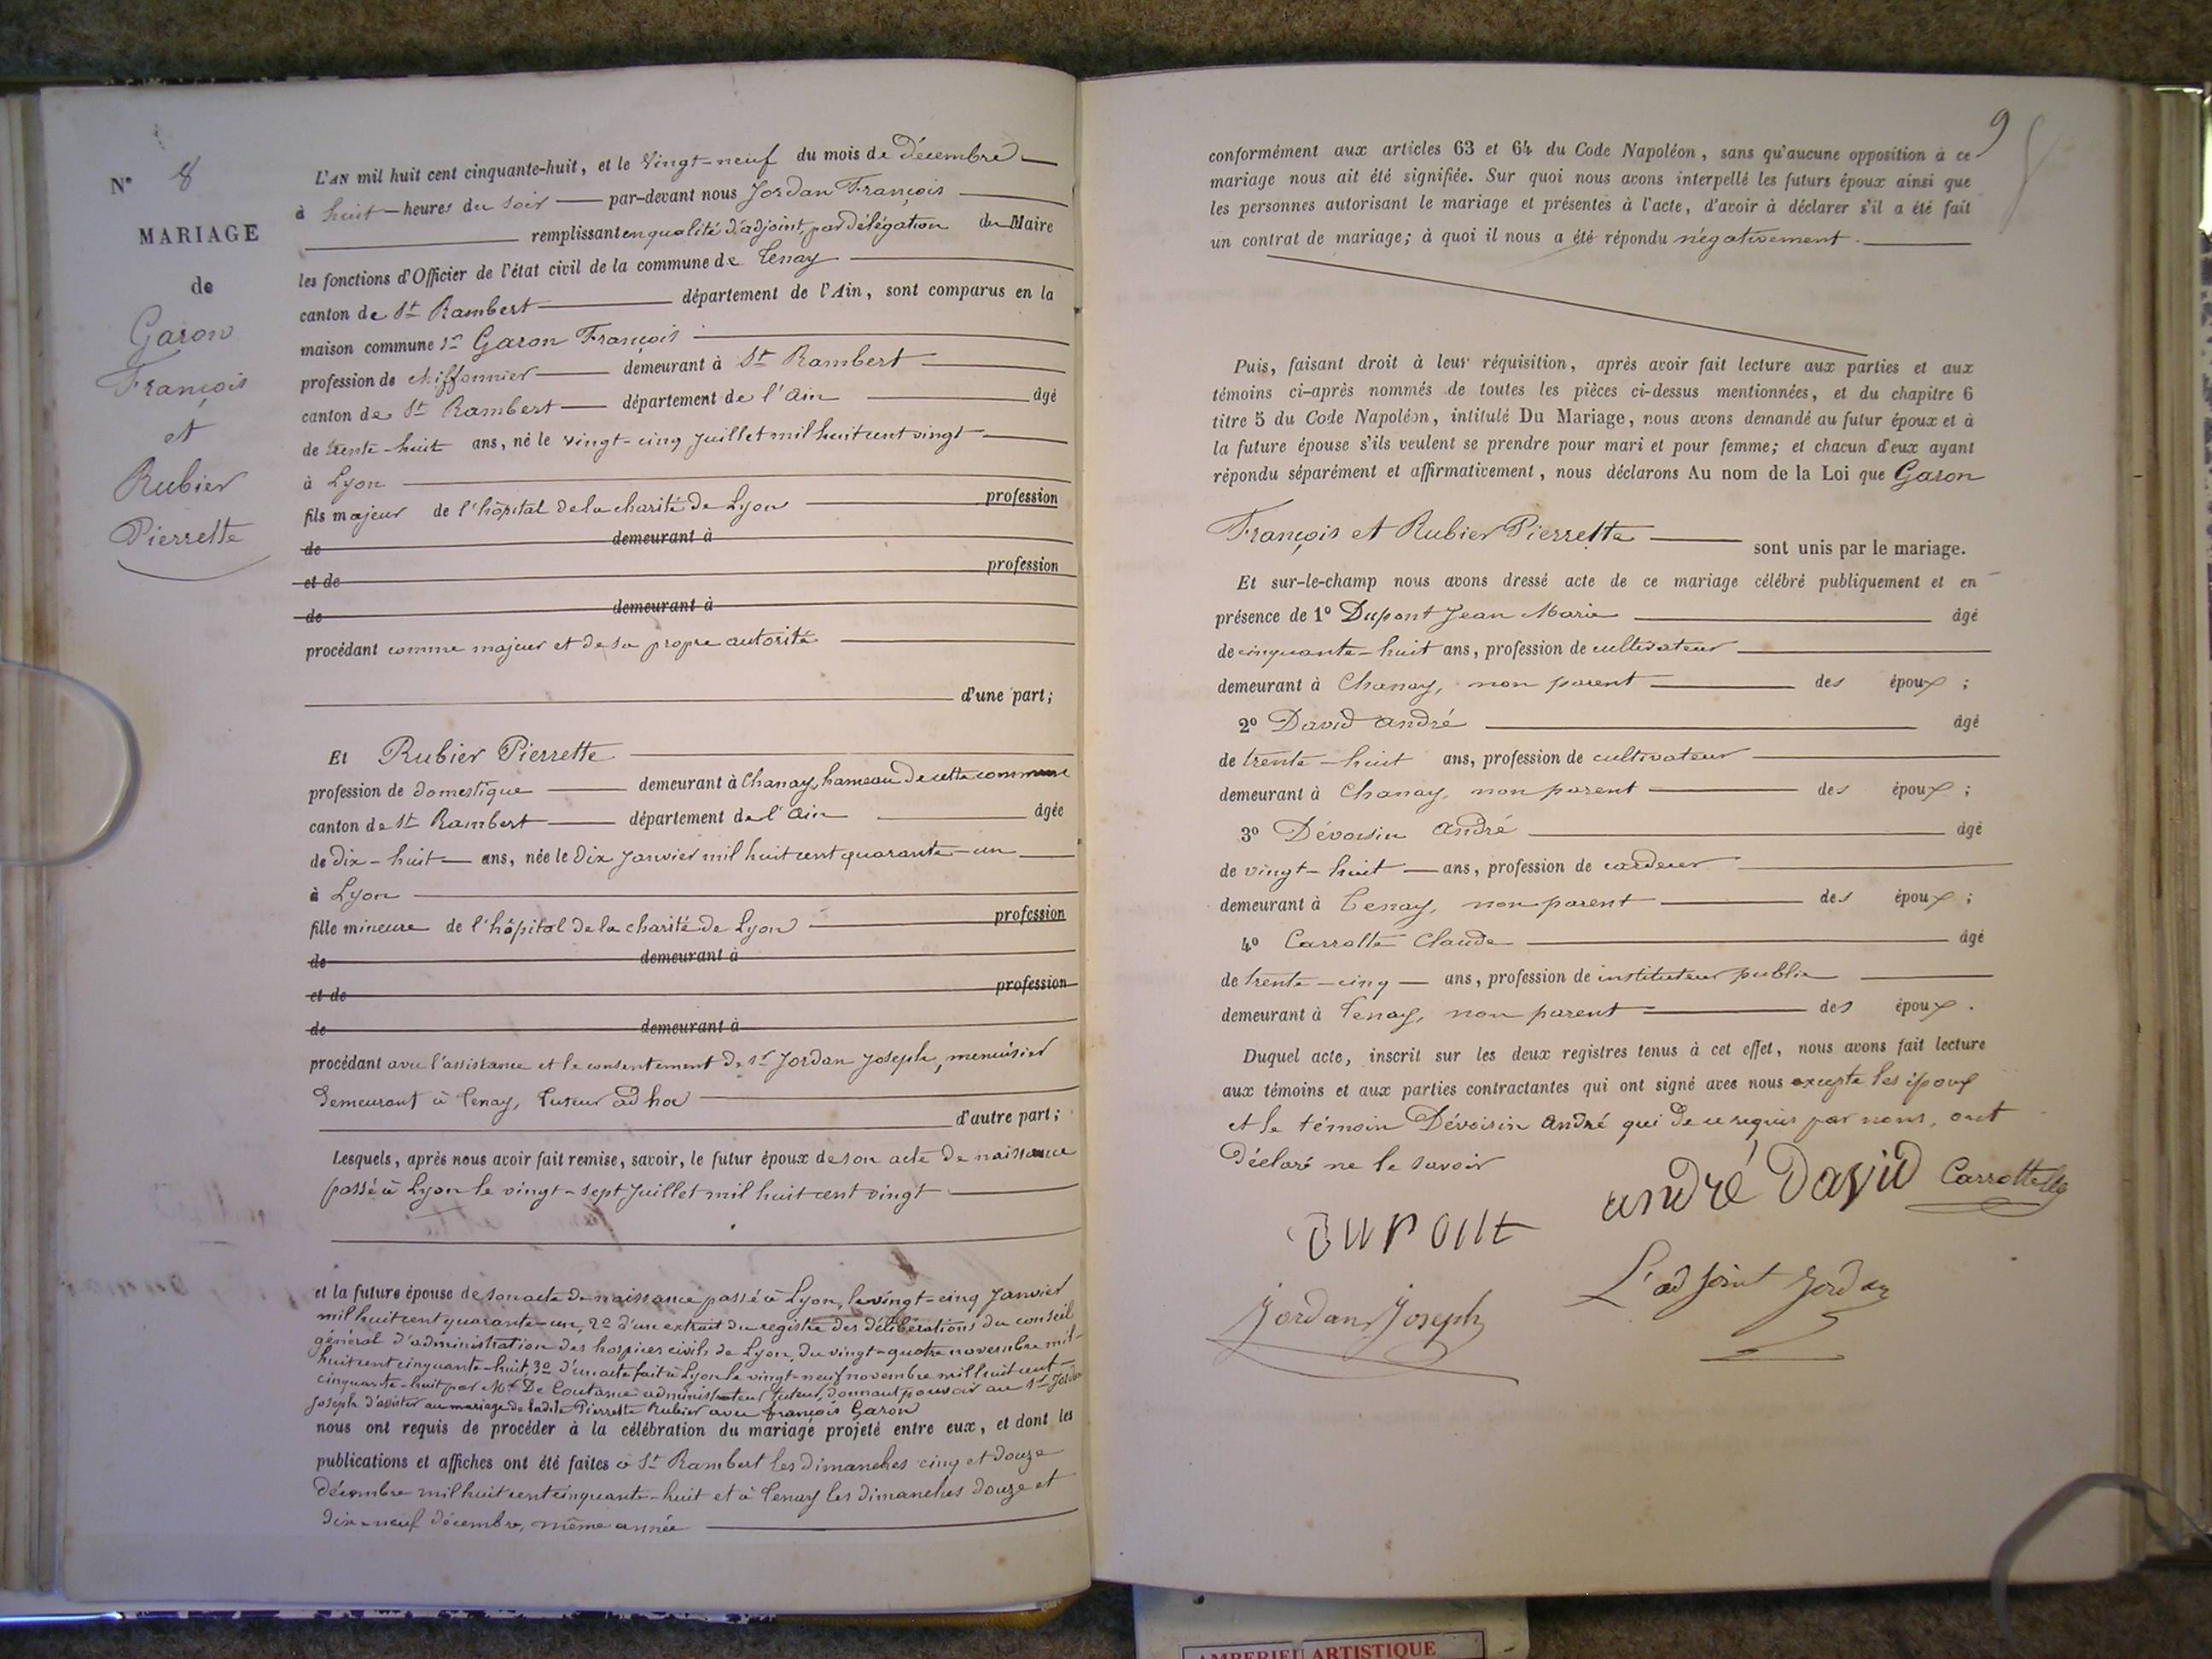 N° 8
MARIAGE
de
Garon
François
et
Rubier
Pierrette
L'AN mil huit cent cinquante-huit, et le Vingt-neuf du mois de Décembre
à huit heures du soir par-devant nous Jordan François
remplissant en qualité d'adjoint, par délégation du Maire
les fonctions d'Officier de l'état civil de la commune de Tenay
canton de St Rambert département de l'Ain, sont comparus en la
maison commune sr Garon François
profession de chiffonnier demeurant à St Rambert
canton de St Rambert département de l'ain âgé
de trente-huit ans, né le vingt-cinq Juillet mil huit cent vingt
à Lyon
fils majeur de l'hôpital de la charité de Lyon profession
de demeurant à
et de profession
de demeurant à
procédant comme majeur et de sa propre autorité
d'une part;
Et Rubier Pierrette
profession de domestique demeurant à Chanay, hameau de cette commune
canton de St Rambert département de l'ain âgée
de Dix-huit ans, née le Dix Janvier mil huit cent quarante-un
à Lyon
fille mineure de l'hôpital de la charité de Lyon profession
de demeurant à
et de profession
de demeurant à
procédant avec l'assistance et le consentement de sr Jordan Joseph, menuisier
demeurant à Tenay, Tuteur ad hoc
d'autre part;
Lesquels, après nous avoir fait remise, savoir, le futur époux de son acte de naissance
passé à Lyon le vingt-sept Juillet mil huit cent vingt
et la future épouse de son acte de naissance passé à Lyon, le vingt-cinq Janvier
mil huit cent quarante-un, 2° d'un extrait du registre des délibérations du conseil
général d'administration des hospices civils de Lyon, du vingt-quatre novembre mil-
huit cent cinquante-huit, 3° d'un acte fait à Lyon le vingt-neuf novembre mil huit cent
cinquante-huit par Mr De Coutance administrateur Tuteur, donnant pouvoir au sr Jordan
Joseph d'assister au mariage de ladite Pierrette Rubier avec François Garon
nous ont requis de procéder à la célébration du mariage projeté entre eux, et dont les
publications et affiches ont été faites à St Rambert les dimanches cinq et douze
décembre mil huit cent cinquante-huit et à Tenay les dimanches douze et
dix-neuf décembre, même année
9
conformément aux articles 63 et 64 du Code Napoléon, sans qu'aucune opposition à ce
mariage nous ait été signifiée. Sur quoi nous avons interpellé les futurs époux ainsi que
les personnes autorisant le mariage et présentes à l'acte, d'avoir à déclarer s'il a été fait
un contrat de mariage; à quoi il nous a été répondu négativement.
Puis, faisant droit à leur réquisition, après avoir fait lecture aux parties et aux
témoins ci-après nommés de toutes les pièces ci-dessus mentionnées, et du chapitre 6
titre 5 du Code Napoléon, intitulé Du Mariage, nous avons demandé au futur époux et à
la future épouse s'ils veulent se prendre pour mari et pour femme; et chacun d'eux ayant
répondu séparément et affirmativement, nous déclarons Au nom de la Loi que Garon
François et Rubier Pierrette sont unis par le mariage.
Et sur-le-champ nous avons dressé acte de ce mariage célébré publiquement et en
présence de 1° Dupont Jean Marie âgé
de cinquante-huit ans, profession de cultivateur
demeurant à Chanay, non parent des époux ;
2° David andré âgé
de trente-huit ans, profession de cultivateur
demeurant à Chanay, non parent des époux ;
3° Dévoisin andré âgé
de vingt-huit ans, profession de cardeur
demeurant à Tenay, non parent des époux ;
4° Carrotte Claude âgé
de trente-cinq ans, profession de instituteur public
demeurant à Tenay, non parent des époux .
Duquel acte, inscrit sur les deux registres tenus à cet effet, nous avons fait lecture
aux témoins et aux parties contractantes qui ont signé avec nous excepté les époux
et le témoin Dévoisin andré qui de ce requis par nous, ont
déclaré ne le savoir
andré David Carrotte
DUPONT
L'adjoint Jordan
Jordan Joseph
AMBERIEU ARTISTIQUE